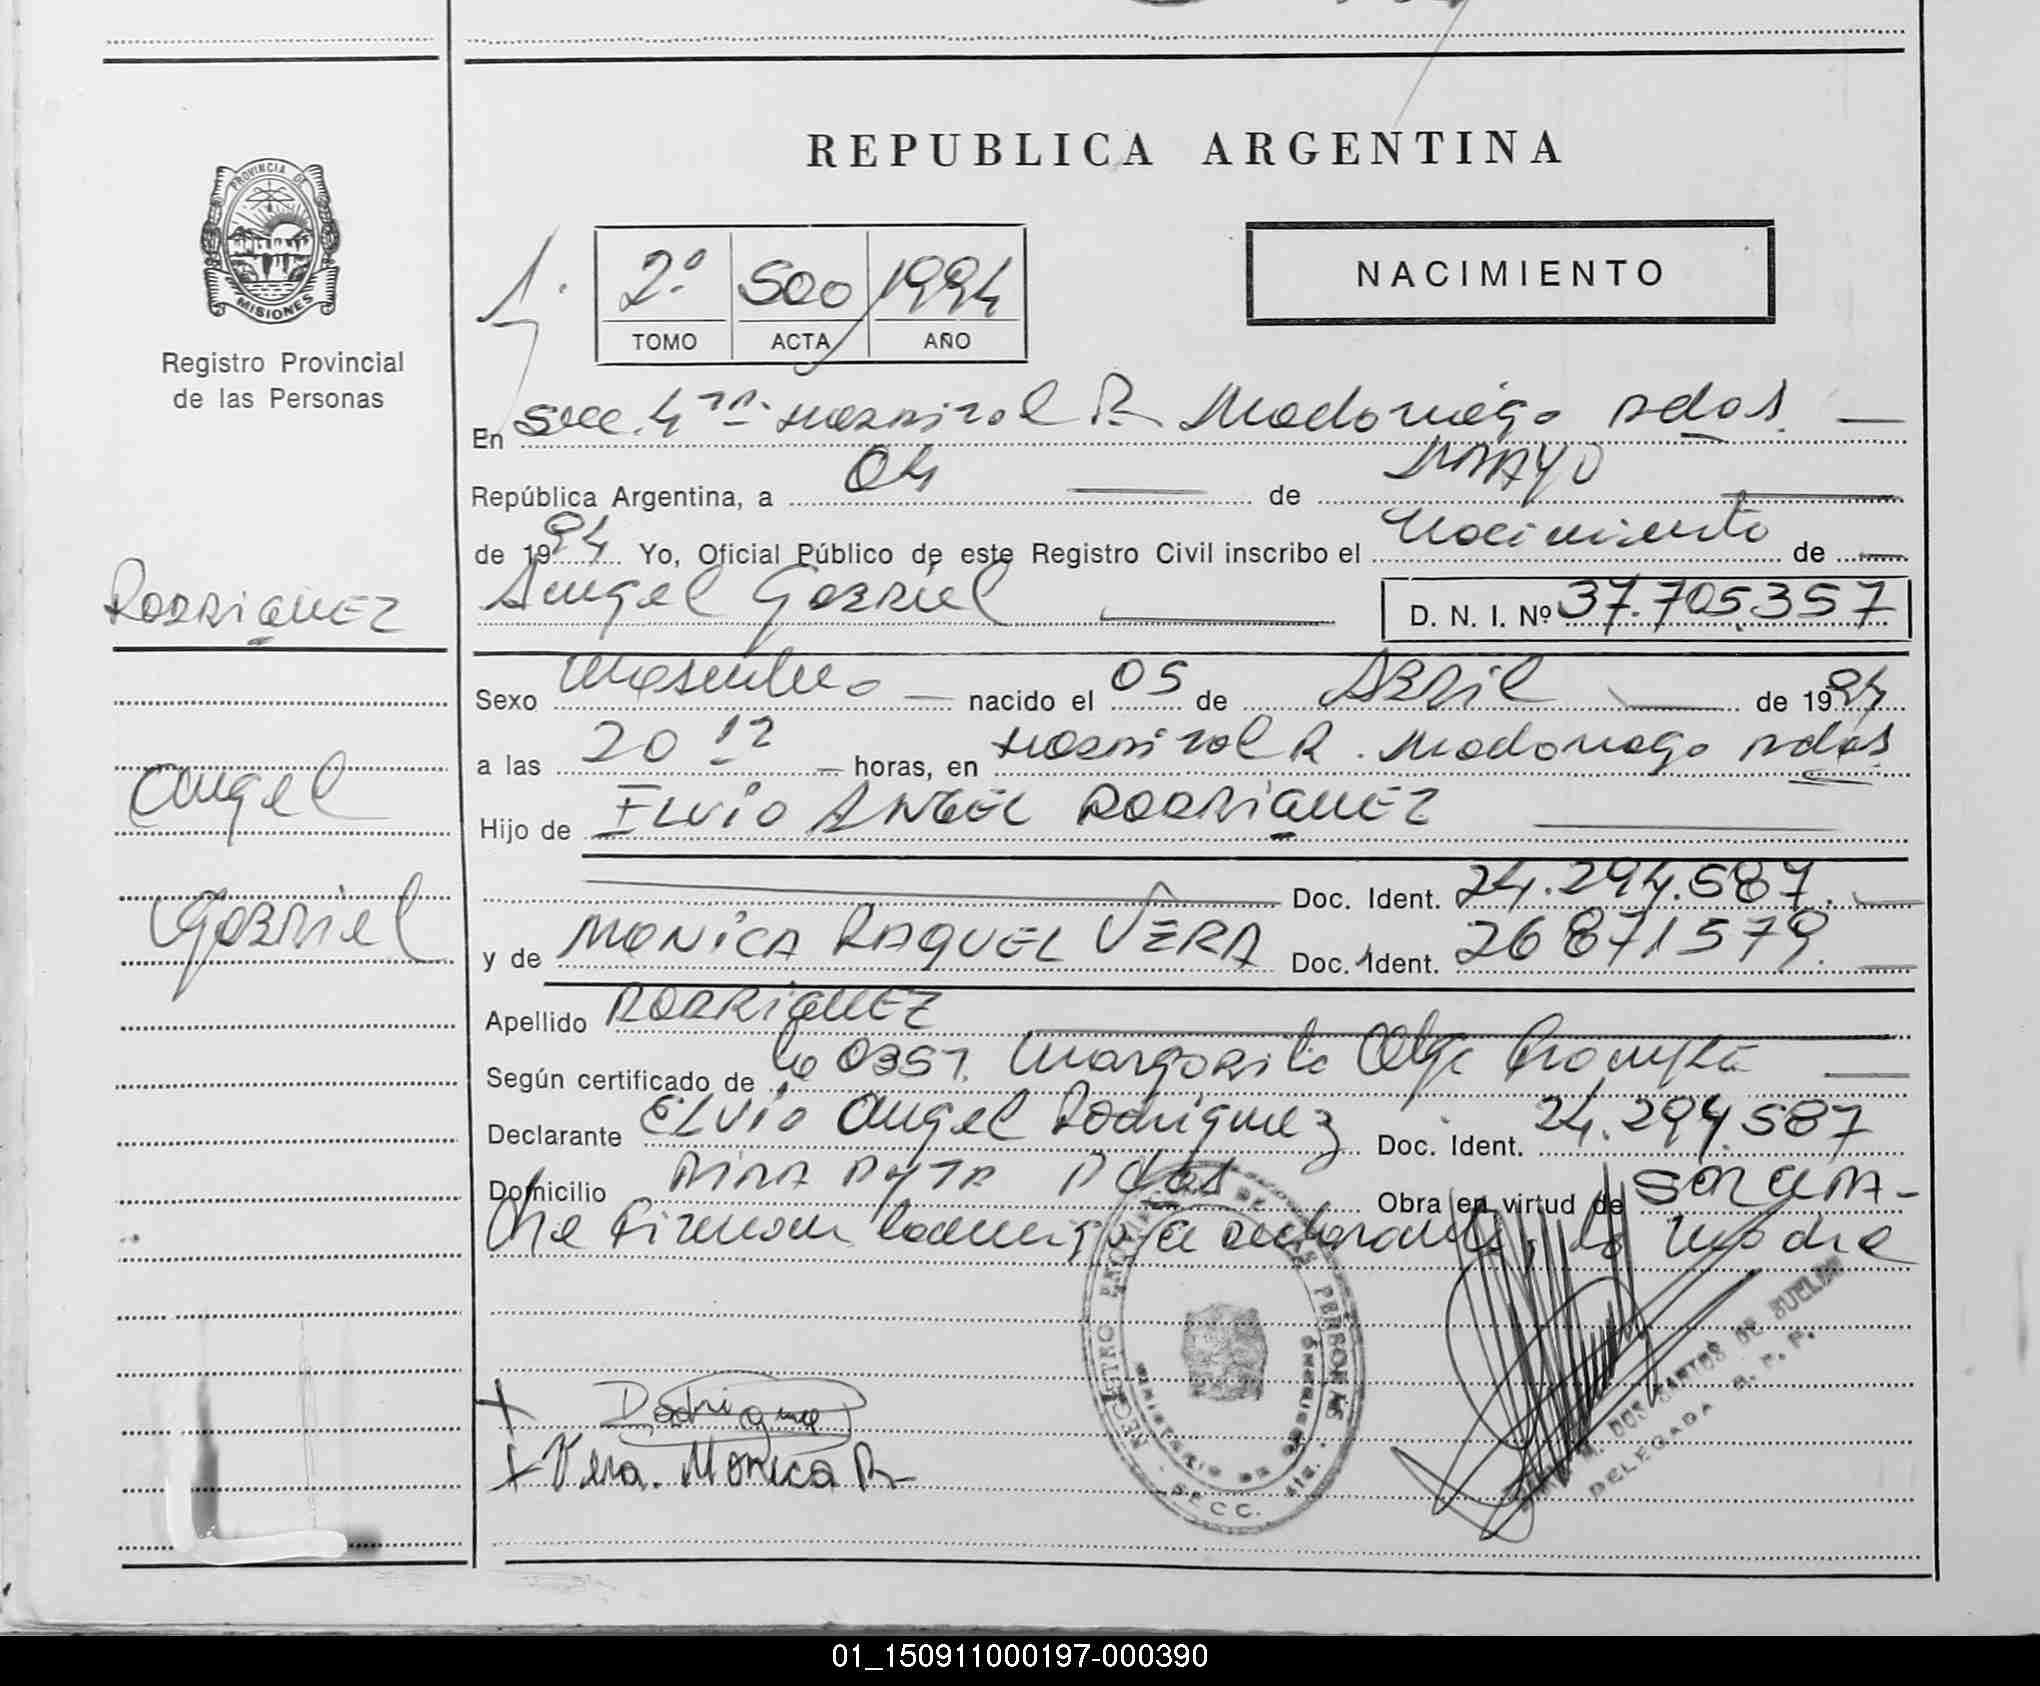 REPUBLICA ARGENTINA
PROVINCIA DE
MISIONES
Registro Provincial
de las Personas
1.
2º 500 1994
TOMO ACTA AÑO
NACIMIENTO
En Secc. 4ta. Hospital R. Madariaga Pdas.
República Argentina, a 04 de MAYO
de 1994 Yo, Oficial Público de este Registro Civil inscribo el Nacimiento de
Angel Gabriel D. N. I. Nº 37.705.357
RODRIGUEZ
Angel
Gabriel
Sexo Masculino nacido el 05 de Abril de 1994
a las 20 12 horas, en Hospital R. Madariaga Pdas
Hijo de ELVIO ANGEL RODRIGUEZ
Doc. Ident. 24.294.587.
y de MONICA RAQUEL VERA Doc. Ident. 26871579.
Apellido RODRIGUEZ
Según certificado de la Obst. Margarita Olga
Declarante ELVIO Angel Rodriguez Doc. Ident. 24.294.587
Domicilio Pdas Obra en virtud de
firman conmigo el declarante, la Madre
REGISTRO PROVINCIAL DE LAS PERSONAS
MINISTERIO DE GOBIERNO
SECC. 4ta.
Rodriguez
Vera. Monica R
M. DOS SANTOS DE
DELEGADA R. P. P.
01_150911000197-000390